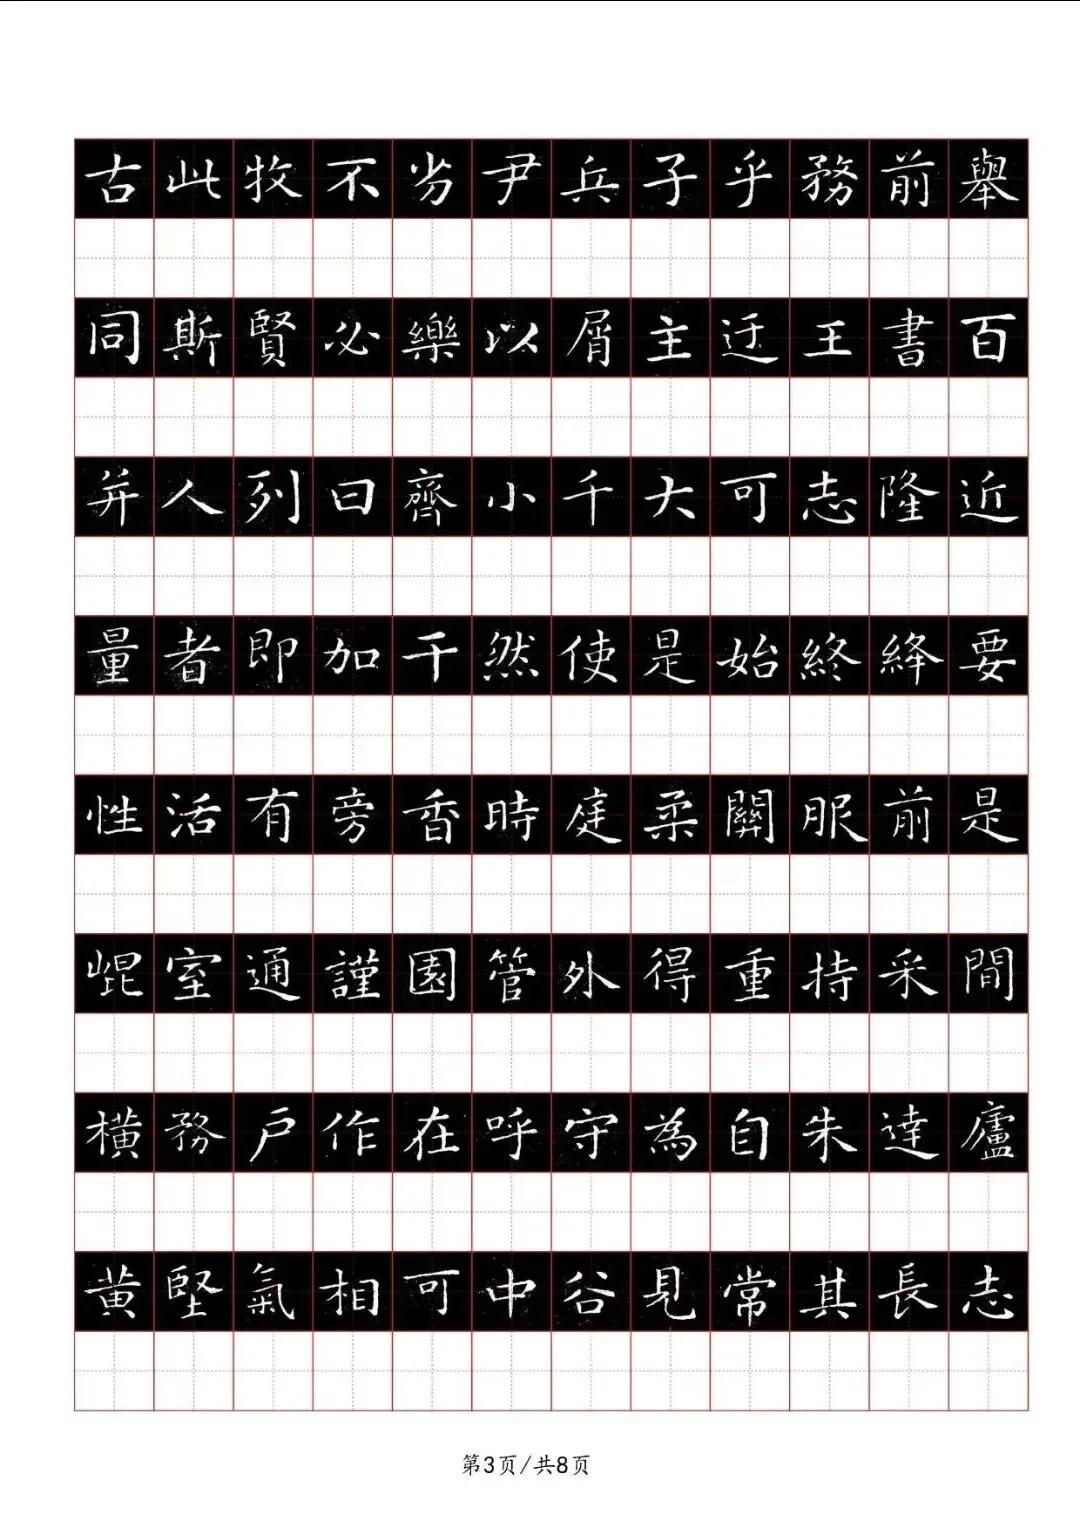 古此牧不劣尹兵子乎務前舉
同斯賢必樂以屑主迋王書百
并人列曰齊小千大可志隆近
量者即加千然使是始終絳要
性活有旁香時庭柔關服前是
崐室通謹園管外得重持采間
橫務戶作在呼守為自朱達廬
黄堅氣相可中谷見常其長志
第3页/共8页